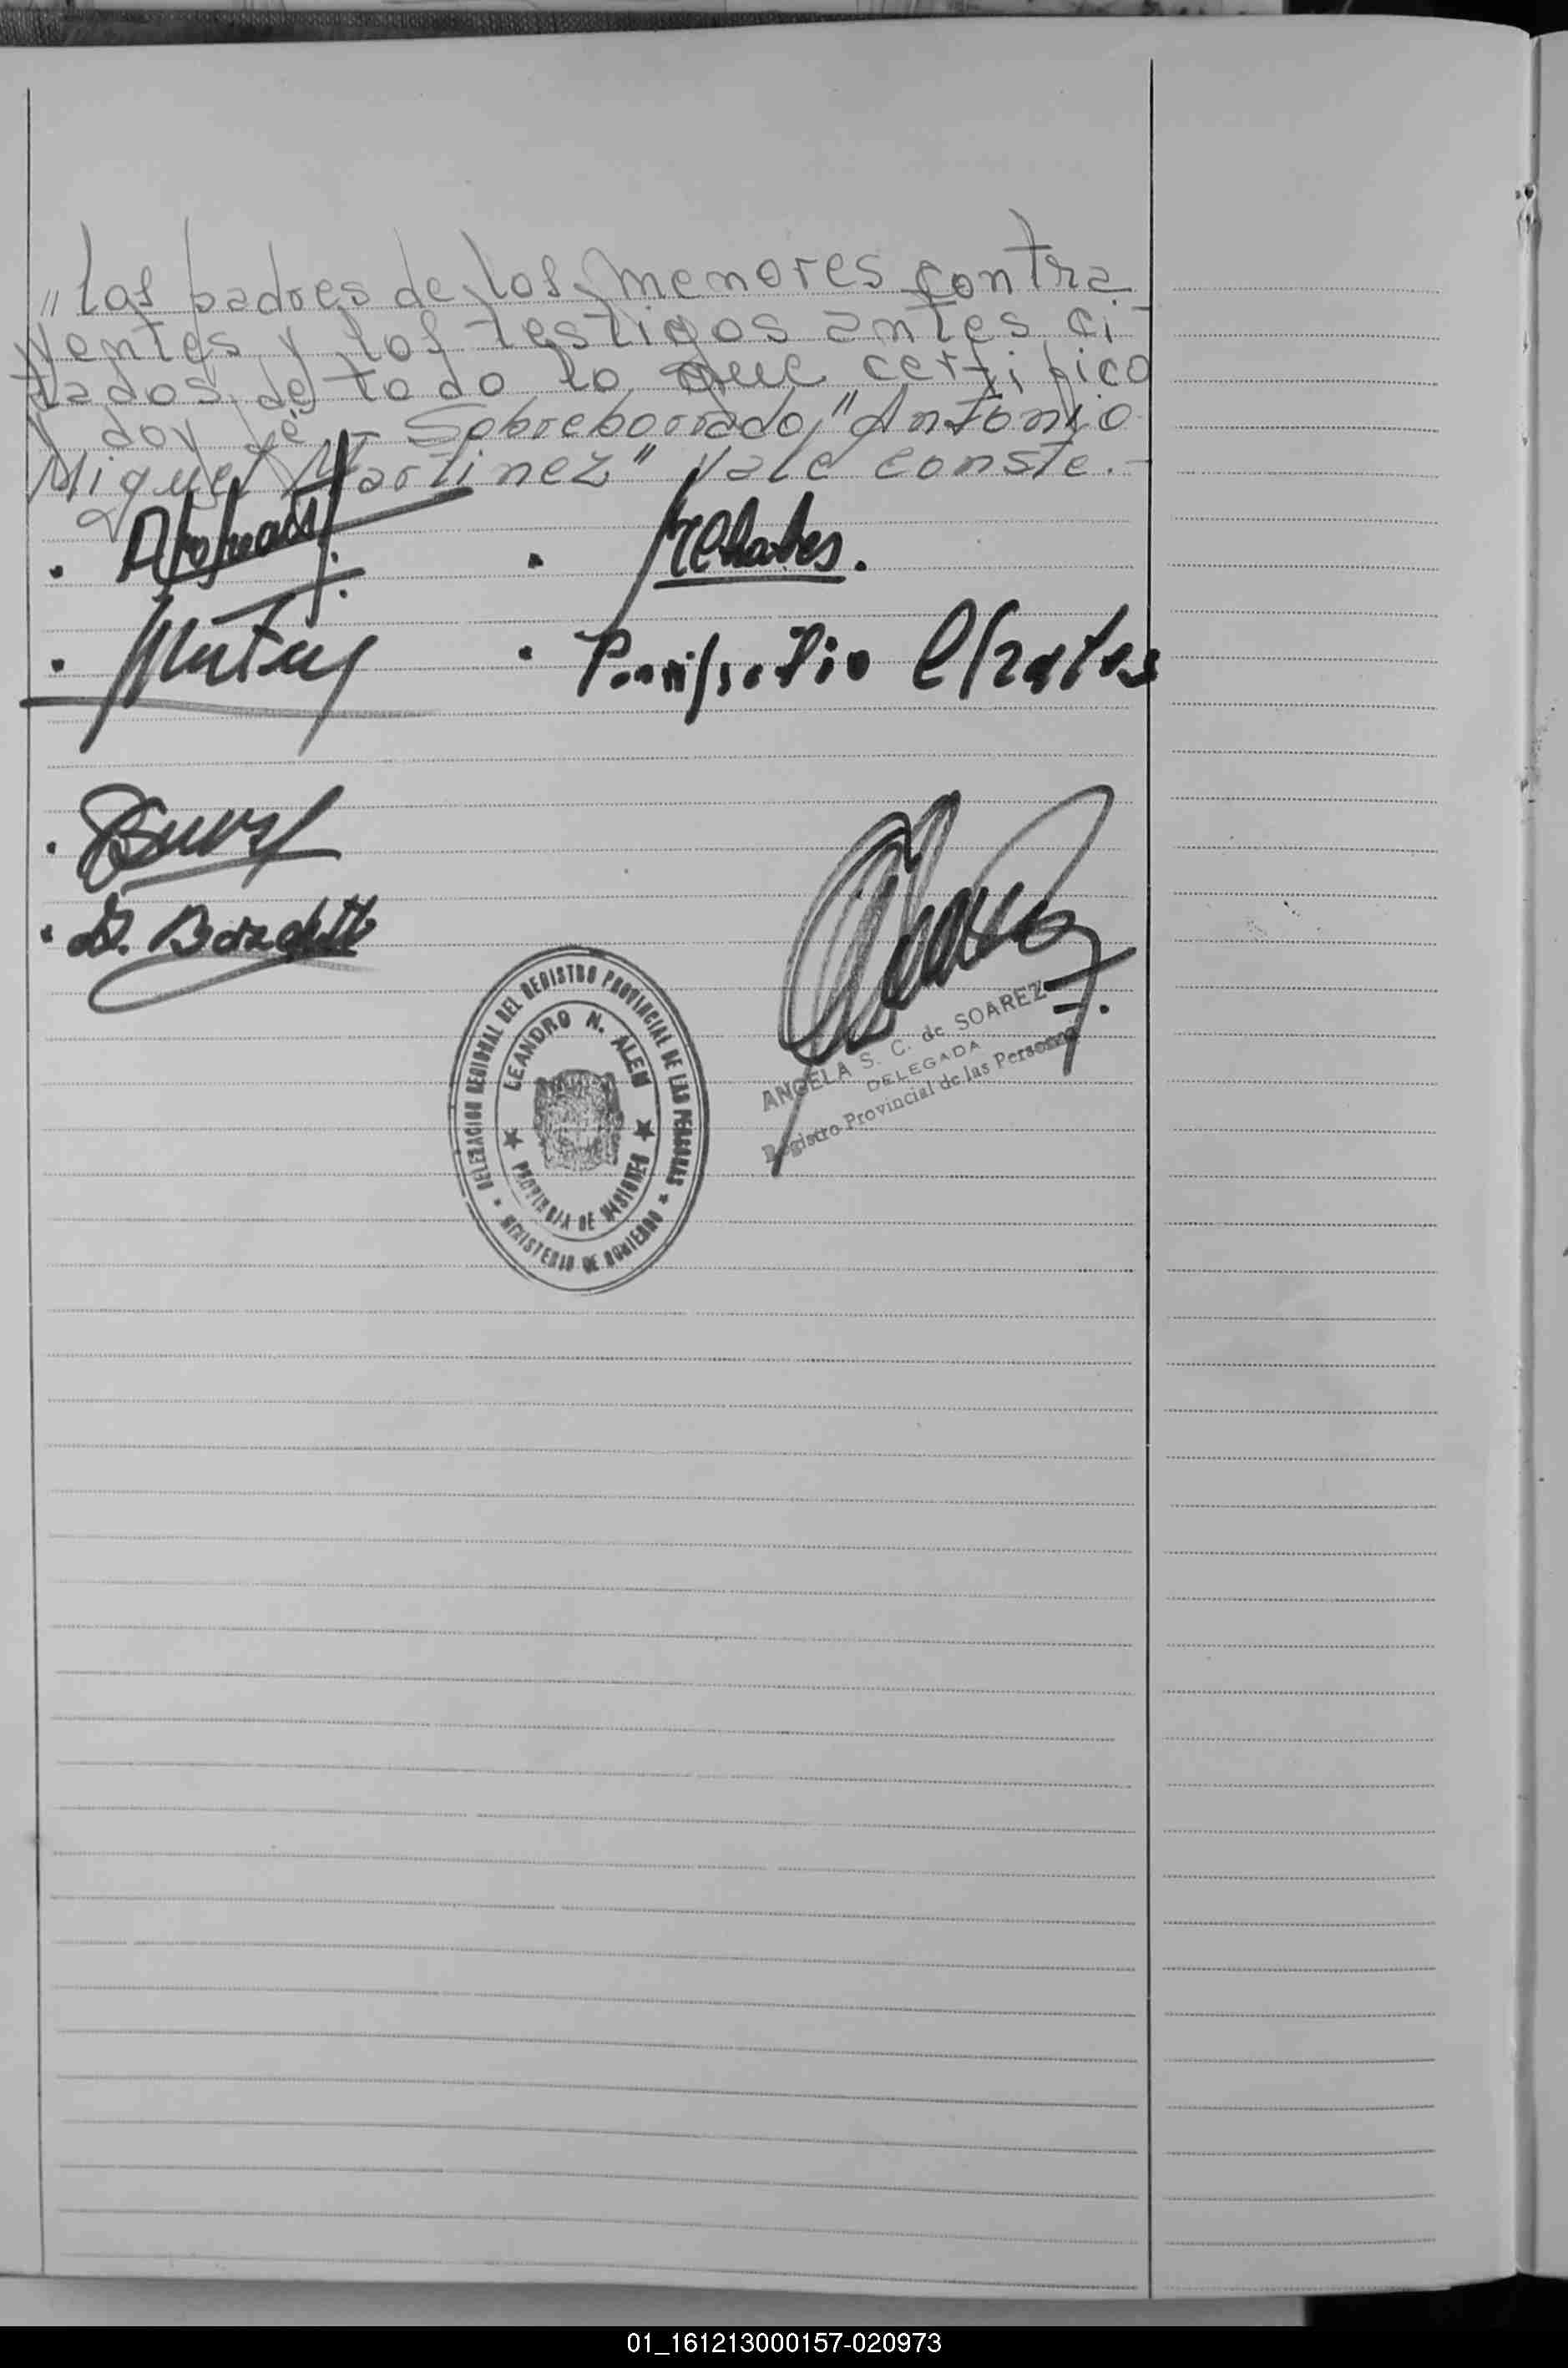 "los padres de los menores contra
yentes y los testigos antes ci-
tados, de todo lo que certifico
y doy fé.- Sobreborrado, "Antonio
Miguel Martinez" Vale conste.-
D. Bazachtt
DELEGACION REGIONAL DEL REGISTRO PROVINCIAL DE LAS PERSONAS
LEANDRO N. ALEM
PROVINCIA DE MISIONES
MINISTERIO DE GOBIERNO
ANGELA S. C. de SOAREZ
DELEGADA
Registro Provincial de las Personas
01_161213000157-020973